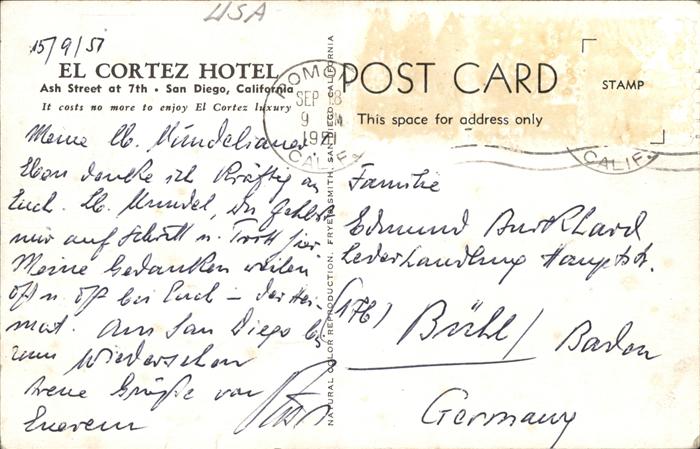 USA
15/9/51
EL CORTEZ HOTEL
Ash Street at 7th • San Diego, California
It costs no more to enjoy El Cortez luxury
POMONA
SEP 18
9 M
1951
CALIF.
POST CARD
This space for address only
STAMP
CALIF.
NATURAL COLOR REPRODUCTION. FRYE & SMITH, SAN DIEGO, CALIFORNIA
Meine lb.
Eben denke ich kräftig an
Euch. Lb. Mundel, Du fehlst
mir auf Schritt u. Tritt hier.
Meine Gedanken weilen
oft u. oft bei Euch – der Hei-
mat. Aus San Diego bis
zum Wiedersehen
treue Grüße von
Eurem
Familie
Edmund Burkhard
Lederhandlung Hauptstr.
(17b) Bühl/ Baden
Germany